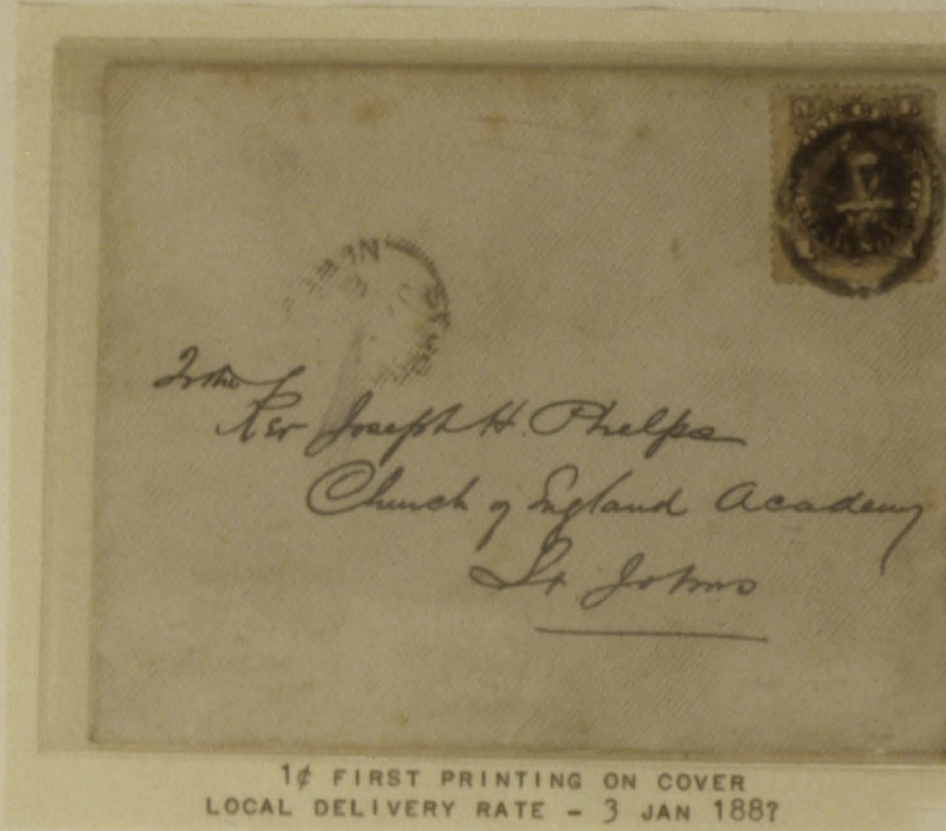 To the
Rev Joseph H. Phelps
Church of England Academy
St. Johns
1¢ FIRST PRINTING ON COVER
LOCAL DELIVERY RATE - 3 JAN 188?